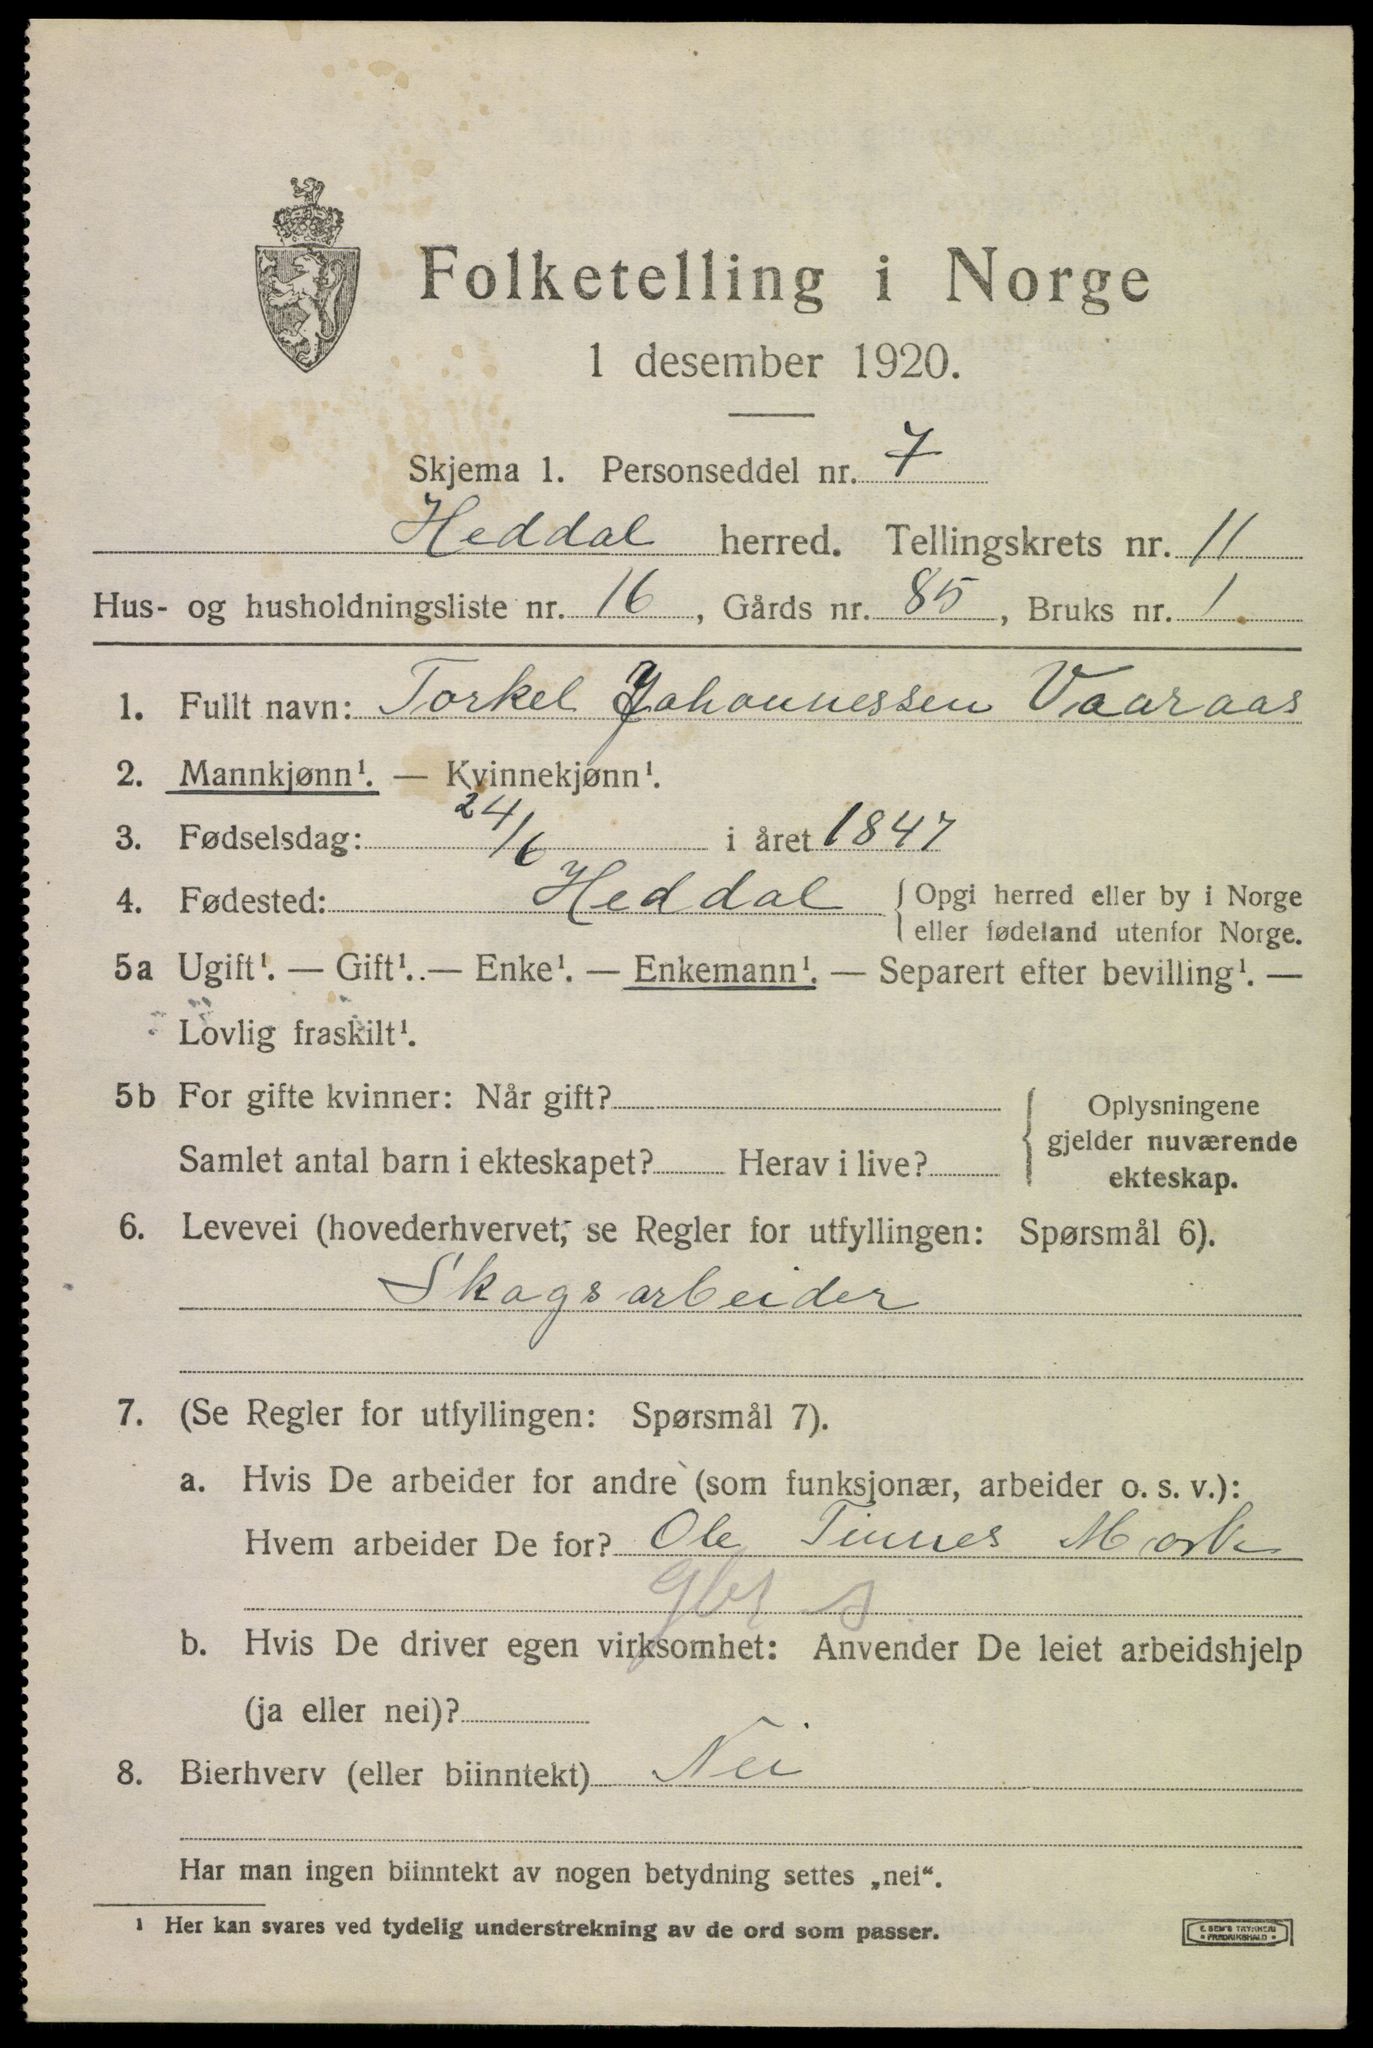 Folketelling i Norge
1 desember 1920.
Skjema 1. Personseddel nr. 7
Heddal herred. Tellingskrets nr. 11
Hus- og husholdningsliste nr. 16, Gårds nr. 85, Bruks nr. 1
1. Fullt navn: Torkel Johannessen Vaaraas
2. Mannkjønn¹. — Kvinnekjønn¹.
3. Fødselsdag: 24/6 i året 1847
4. Fødested: Heddal { Opgi herred eller by i Norge
eller fødeland utenfor Norge.
5a Ugift¹. — Gift¹. — Enke¹. — Enkemann¹. — Separert efter bevilling¹. —
Lovlig fraskilt¹.
5b For gifte kvinner: Når gift?
Samlet antal barn i ekteskapet? Herav i live?
Oplysningene
gjelder nuværende
ekteskap.
6. Levevei (hovederhvervet; se Regler for utfyllingen: Spørsmål 6).
Skogsarbeider
7. (Se Regler for utfyllingen: Spørsmål 7).
a. Hvis De arbeider for andre (som funksjonær, arbeider o. s. v.):
Hvem arbeider De for? Ole Tinnes
b. Hvis De driver egen virksomhet: Anvender De leiet arbeidshjelp
(ja eller nei)?
8. Bierhverv (eller biinntekt) Nei
Har man ingen biinntekt av nogen betydning settes „nei“.
¹ Her kan svares ved tydelig understrekning av de ord som passer.
E. SEM'S TRYKKERI
FREDRIKSHALD